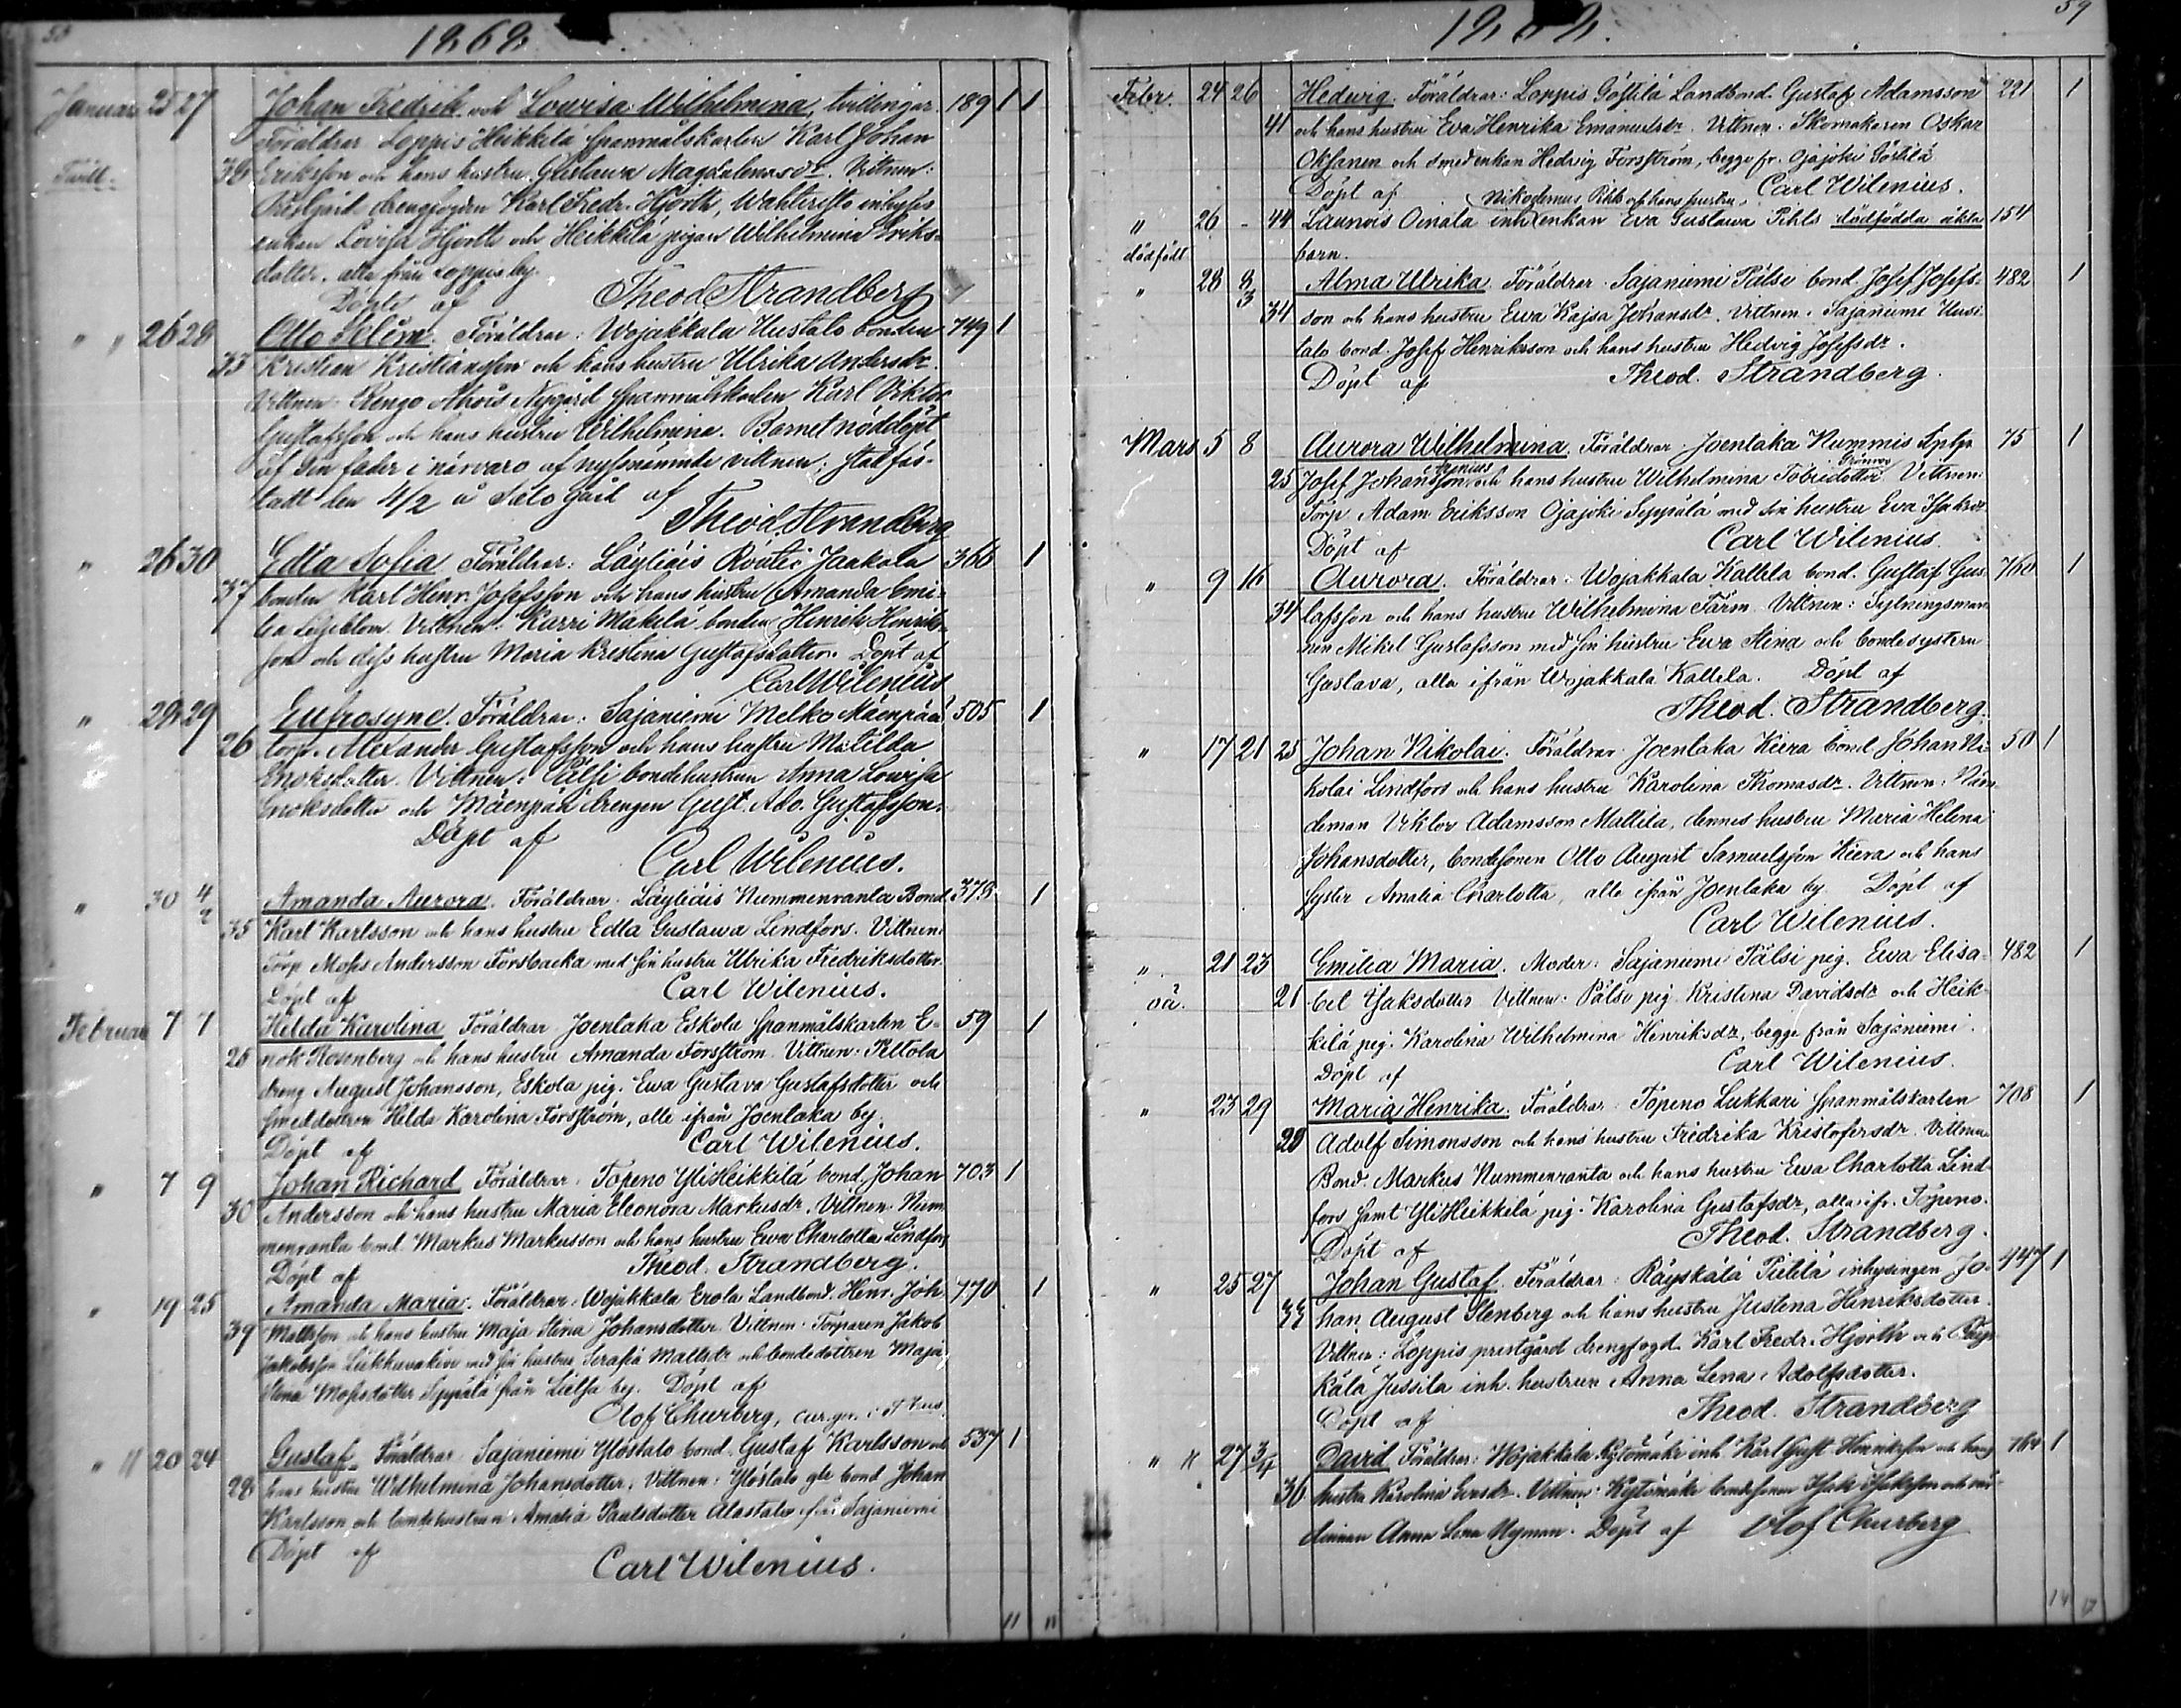 58
1868
Januari 25 27 Johan Fredrik och Lovisa Wilhelmina, tvillingar. 189 1 1
Föräldrar Loppis Heikkilä spanmålskarlen Karl Johan
Tvill. 36 Eriksson och hans hustru Gustawa Magdalenasdr. Vittnen:
Prestgårds drengfogden Karl Fredr. Hjorth, inhyses
enkan Lovisa Hjorth och Heikkilä pigan Wilhelmina Eriks-
dotter, alla från Loppis by.
Döpte af Theod Strandberg
" " 26 28 Otto Selim. Föräldrar: Wojakkala Uustalo bonden 749 1
33 Kristian Kristiansson och hans hustru Ulrika Andersdr.
Vittnen: Rengo Ahois Nygård spanmålskarlen Karl Viktor
Gustafsson och hans hustru Wilhelmina. Barnet nöddöpt
af sin fader i närvaro af nyssnämnde vittnen; stadfäs-
tadt den 4/2 å Selo gård af
Theod. Strandberg
" 26 30 Edla Sofia Föräldrar: Läyliäis Routio Jaakola 366 1
37 bonden Karl Henr. Josefsson och hans hustru Amanda Emi-
lia Liljeblom. Vittnen: Karri Mäkilä bonden Henrik Henriks-
son och dess hustru Maria Kristina Gustafsdotter. Döpt af
Carl Wilenius
" 29 29 Eufrosyne. Föräldrar: Sajaniemi Melko Mäenpää 505 1
26 torp. Alexander Gustafsson och hans hustru Matilda
Enoksdotter. Vittnen: Pälsi bondehustrun Anna Lovisa
Enoksdotter och Mäenpää drengen Gust. Ado. Gustafsson.
Döpt af
Carl Wilenius.
" 30 4/2 Amanda Aurora. Föräldrar: Läyliäis Nummenranta Bond. 373 1
35 Karl Karlsson och hans hustru Edla Gustawa Lindfors. Vittnen:
Torp Moses Andersson Forsbacka med sin hustru Ulrika Fredriksdotter.
Döpt af Carl Wilenius.
Februari 7 7 Hilda Karolina Föräldrar Joentaka Eskola spanmålskarlen E- 59 1
25 nok Rosenberg och hans hustru Amanda Forsström. Vittnen: Peltola
dreng August Johansson, Eskola pig. Ewa Gustava Gustafsdotter och
smeddottren Hilda Karolina Forsström, alla ifrån Joentaka by.
Döpt af Carl Wilenius.
" 7 9 Johan Richard Föräldrar: Topeno YliHeikkilä bond. Johan 703 1
30 Andersson och hans hustru Maria Eleonora Markusdr. Vittnen Num-
menranta bond. Markus Markusson och hans hustru Ewa Charlotta Lindfors
Döpt af Theod. Strandberg.
" 19 25 Amanda Maria. Föräldrar: Wojakkala Erola Landbond. Henr. Joh. 770 1
39 Mattsson och hans hustru Maja Stina Johansdotter. Vittnen: Torparen Jakob
Jakobsson Liukkavakivi med sin hustru Serafia Mattsdr och bondedottren Maja
Stina Mosesdotter Seppälä från Lielsa by. Döpt af
Olof Churberg,
" 11 20 24 Gustaf. Föräldrar Sajaniemi Ylöstalo bond. Gustaf Karlsson och 537 1
28 hans hustru Wilhelmina Johansdotter. Vittnen: Ylöstalo gle bond Johan
Karlsson och bondehustrun Amalia Paulsdotter Alastalo ifrån Sajaniemi
Döpt af
Carl Wilenius.
11 11
59
1868.
Febr. 24 26 Hedwig. Föräldrar: Loppis Göstilä Landbond. Gustaf Adamsson 221 1
41 och hans hustru Eva Henrika Emanuelsdr. Vittnen: Skomakaren Oskar
Oksanen och smedenkan Hedwig Forsström, begge fr. Ojajoki Göstilä
Döpt af Carl Wilenius.
Nikodemus Pihls och hans hustru
" 26 - 44 Launois Oinala inh. enkan Eva Gustawa Pihls dödfödda äkta 154
dödfödt barn.
" 28 8/3 Alma Ulrika Föräldrar: Sajaniemi Pälsi bond. Josef Josefs- 482 1
34 son och hans hustru Ewa Kajsa Johansdr. Vittnen: Sajaniemi Uusi-
talo bond. Josef Henriksson och hans hustru Hedvig Josefsdr.
Döpt af Theod. Strandberg.
Mars 5 8 Aurora Wilhelmina. Föräldrar: Joentaka Nummis 75 1
25 Josef Johansson och hans hustru Wilhelmina Tobiedotter Grönroos Vittnen:
Torp. Adam Eriksson Ojajoki Seppälä med sin hustru Eva Isaksdr
Döpt af Carl Wilenius.
" 9 16 Aurora. Föräldrar: Wojakkala Kallela bond. Gustaf Gus- 760 1
34 tafsson och hans hustru Wilhelmina Färm. Vittnen: Sytningsman-
nen Mikel Gustafsson med sin hustru Ewa Stina och bondesystern
Gustava, alla ifrån Wojakkala Kallela. Döpt af
Theod. Strandberg.
" 17 21 25 Johan Nikolai. Föräldrar: Joentaka Kiera bond Johan Ni- 50 1
kolai Lindfors och hans hustru Karolina Thomasdr. Vittnen: Nämn-
deman Viktor Adamsson Mattila, dennes hustru Maria Helena
Johansdotter, bondesonen Otto August Samuelsson Kiera och hans
syster Amalia Charlotta, alla ifrån Joentaka by. Döpt af
Carl Wilenius.
" 21 23 Emilia Maria. Moder: Sajaniemi Pälsi pig. Ewa Elisa- 482 1
oä. 21 bet Isaksdotter Vittnen: Pälsi pig Kristina Davidsdr och Heik-
kilä pig. Karolina Wilhelmina Henriksdr, begge från Sajaniemi.
Döpt af Carl Wilenius.
" 23 29 Maria Henrika. Föräldrar: Topeno Lukkari spanmålskarlen 708 1
29 Adolf Simonsson och hans hustru Fredrika Kristofersdr. Vittnen
Bond. Markus Nummenranta och hans hustru Ewa Charlotta Lind-
fors samt YliHeikkilä pig. Karolina Gustafsdr, alla ifr. Topeno.
Döpt af Theod. Strandberg.
" 25 27 Johan Gustaf. Föräldrar: Räyskälä Pietilä inhysingen Jo- 447 1
33 han August Stenberg och hans hustru Justina Henriksdotter.
Vittnen: Loppis prestgård drengfogd. Karl Fredr. Hjorth och Räys-
kälä Jussila inh. hustrun Anna Lena Adolfsdotter.
Döpt af Theod. Strandberg
" 27 3/4 David Föräldrar: Wojakkala Kytömäki inh. Karl Gust. Henriksson och hans 764 1
36 hustru Karolina Eersdr. Vittnen: Kytömäki bondesonen Isak Isaksson och vär-
dinnan Anna Lena Nyman. Döpt af Olof Churberg
14 17